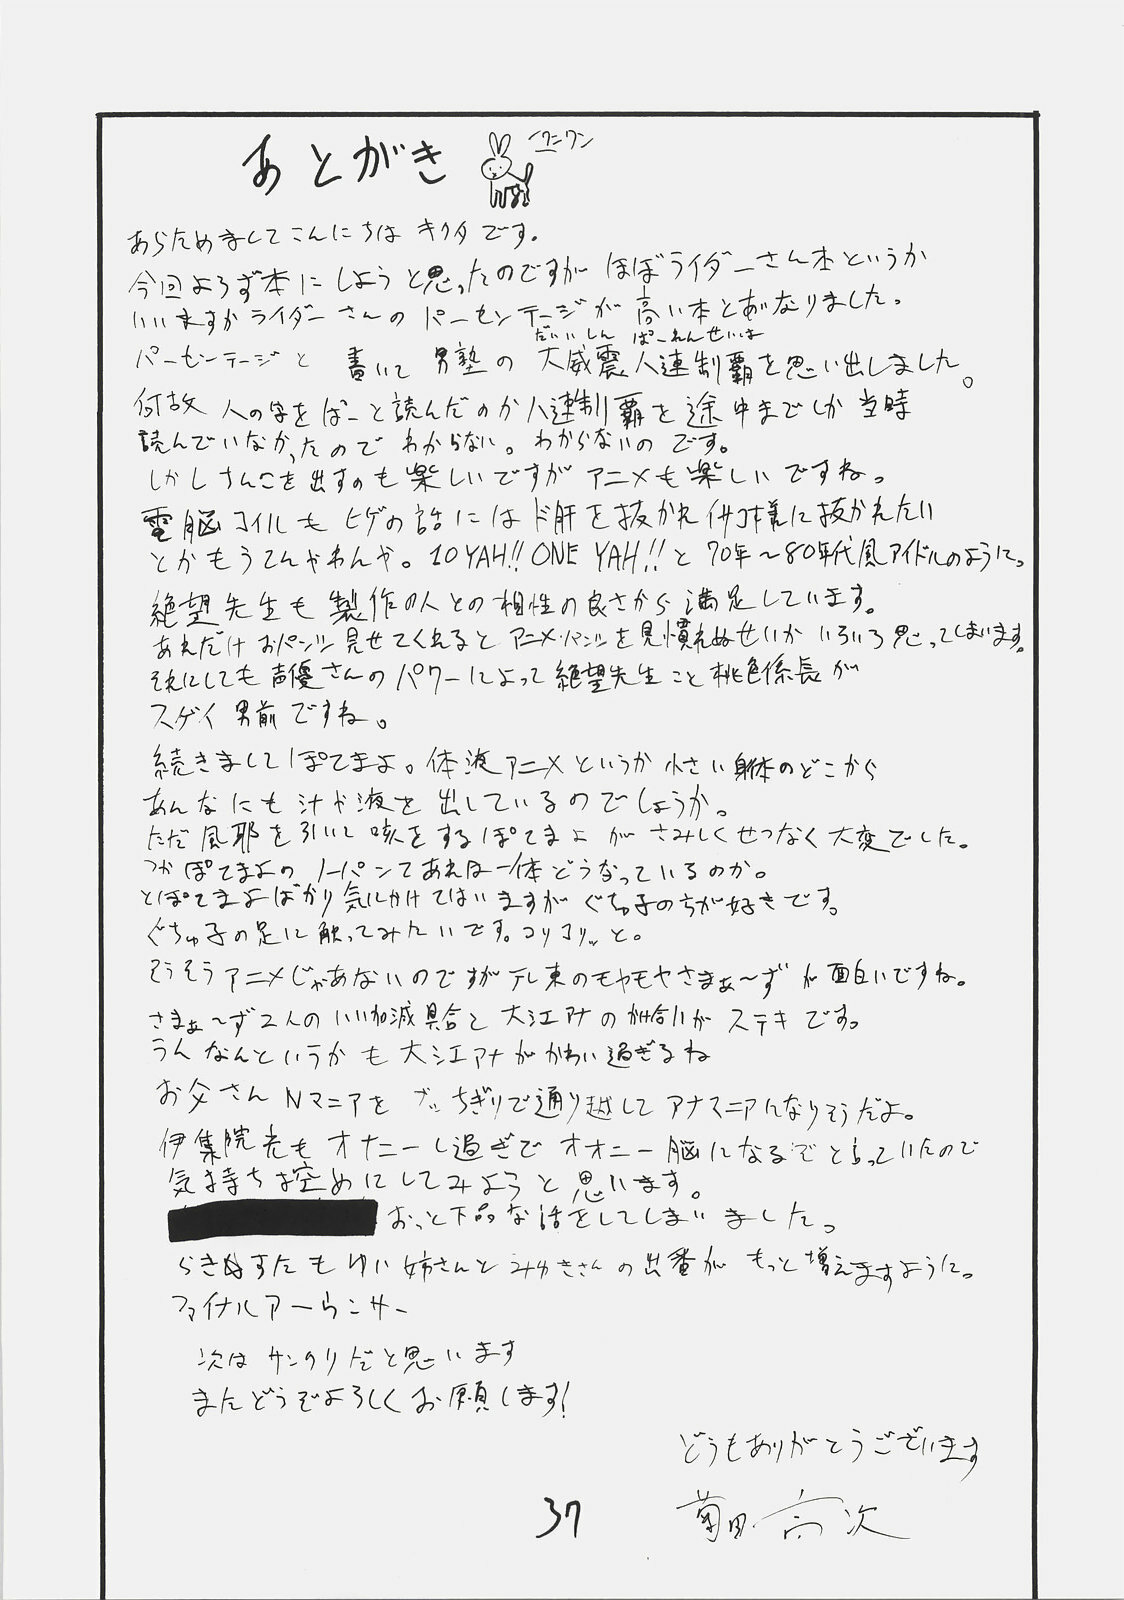 あとがき
ワンワン
あらためましてこんにちは キクタです。
今回よろず本にしようと思ったのですが ほぼライダーさん本というか
いいますかライダーさんのパーセンテージが高い本とあいなりました。
だいいしん ぱーれんせいは
パーセンテージと 書いて 男塾の 大威震人連制覇を思い出しました。
何故 人の字をぱーと読んだのか八連制覇を途中までしか当時
読んでいなかったので わからない。わからないのです。
しかしさんこを出すのも楽しいですが アニメも楽しいですね。
電脳コイルも ヒゲの話には ド肝を抜かれ イサコ様に抜かれたい
とかもうてんやわんや。10YAH!! ONE YAH!! と 70年〜80年代風アイドルのように。
絶望先生も 製作の人との相性の良さから 満足しています。
あれだけおパンツ見せてくれるとアニメ・パンツを見慣れぬせいかいろいろ思ってしまいます。
それにしても声優さんのパワーによって絶望先生こと桃色係長が
スゲイ 男前ですね。
続きましてぽてまよ。体液アニメというか 小さい身体のどこから
あんなにも汁や液を出しているのでしょうか。
ただ 風邪を引いて 咳をするぽてまよ がさみしくせつなく大変でした。
つかぽてまよの ノーパンてあれは一体どうなっているのか。
とぽてまよばかり気にかけてはいますが ぐちゅ子のちが好きです。
ぐちゅ子の足に触ってみたいです。コリコリッと。
そうそうアニメじゃあないのですがテレ東のモヤモヤさまぁ〜ず が面白いですね。
さまぁ〜ず2人のいい加減具合と 大江アナの 具合がステキです。
うん なんというかも 大江アナがかわい過ぎるね
お父さん Nマニアを ブッちぎりで通り越して アナマニアになりそうだよ。
伊集院光も オナニーし過ぎで オオニー脳になるでと言っていたので
気持ち控めにしてみようと思います。
おっと下品な話をしてしまいました。
らき☆すたも ゆい姉さんと みゆきさんの出番が もっと増えますように。
ファイナルアーらンサー
次は サンクリだと思います
またどうぞよろしくお願します!
どうもありがとうございます
菊田 高次
37